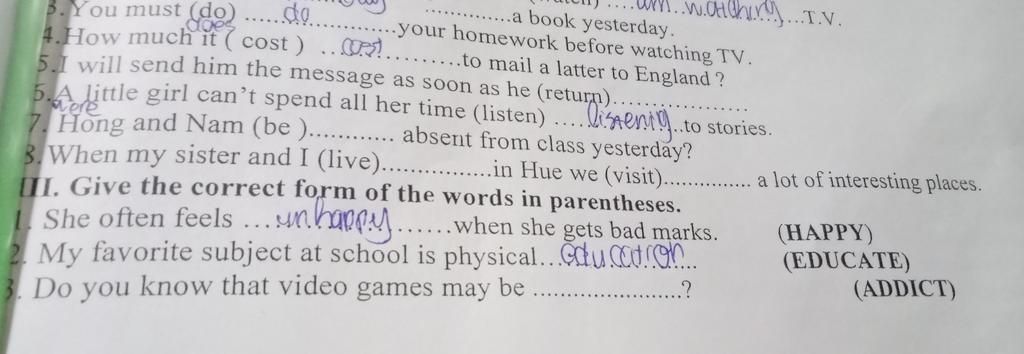 am watching...T.V.
..............a book yesterday.
3.You must (do) .....do..............your homework before watching TV.
does
4.How much it ( cost ) ..cost.............to mail a latter to England ?
5.I will send him the message as soon as he (return)..................
6.A little girl can’t spend all her time (listen) .....listening..to stories.
were
7. Hong and Nam (be )............ absent from class yesterday?
8.When my sister and I (live)................in Hue we (visit)............... a lot of interesting places.
III. Give the correct form of the words in parentheses.
1. She often feels ...unhappy......when she gets bad marks. (HAPPY)
2. My favorite subject at school is physical...education... (EDUCATE)
3. Do you know that video games may be ......................? (ADDICT)